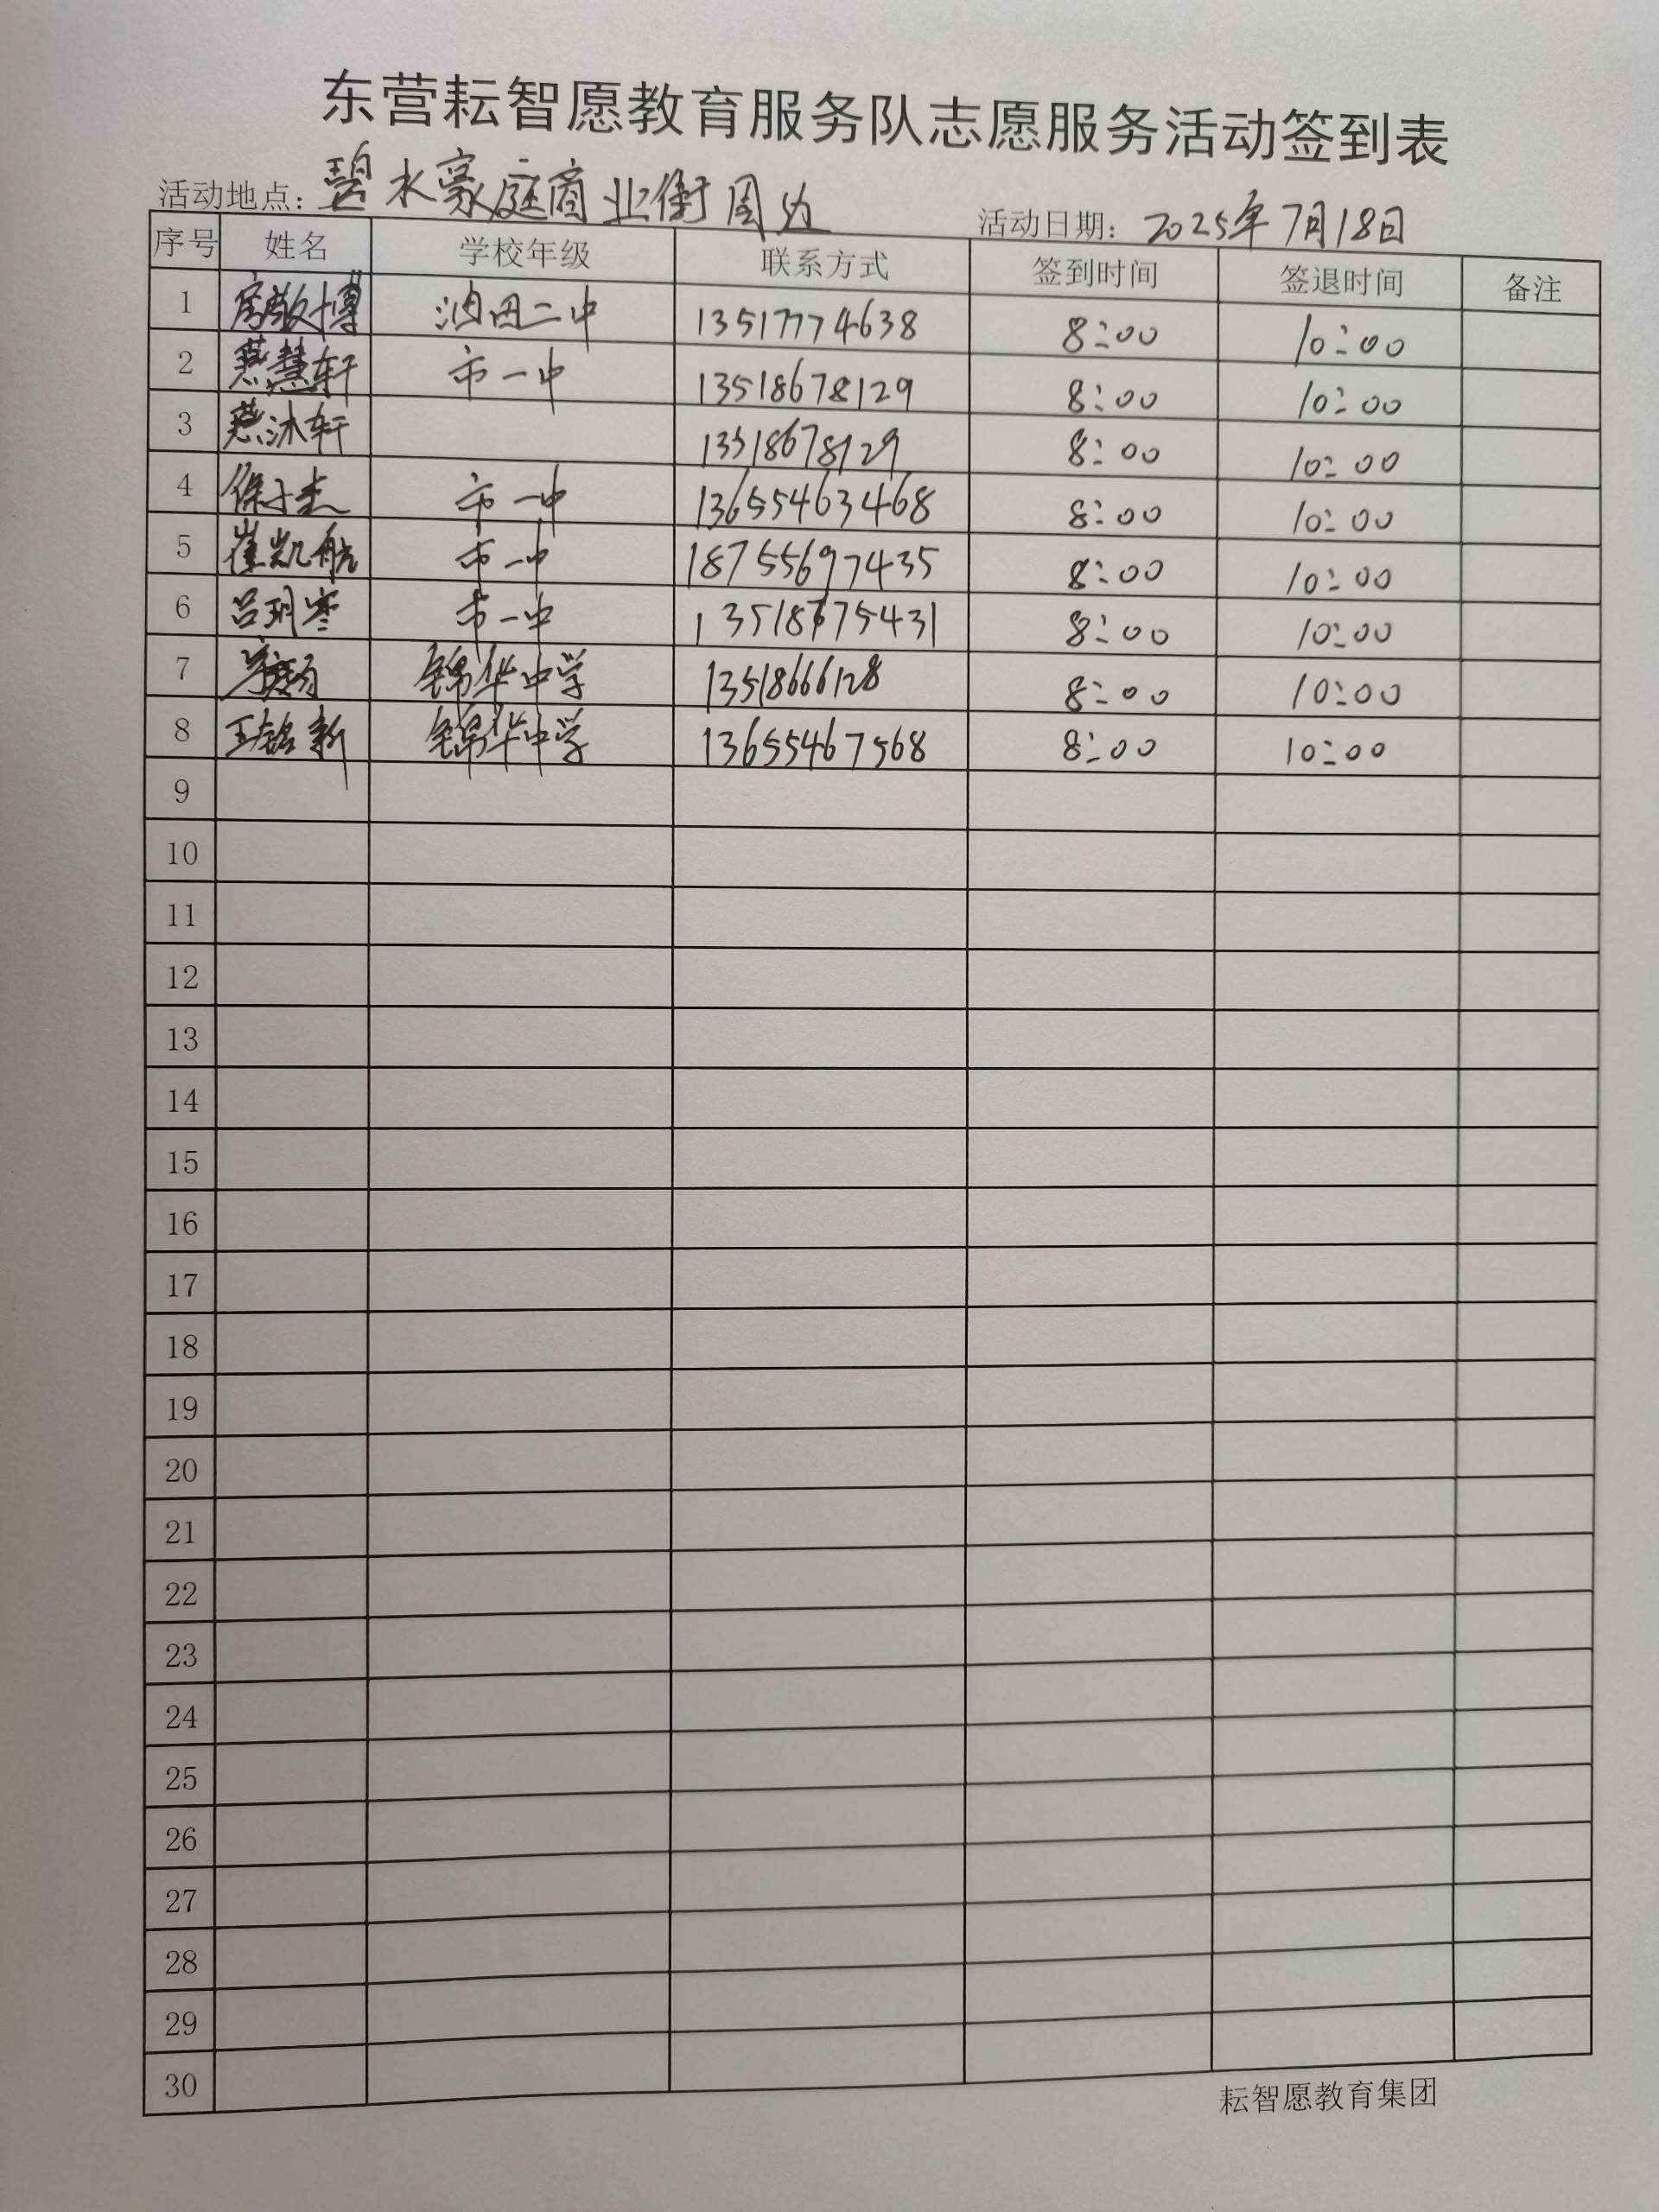 东营耘智愿教育服务队志愿服务活动签到表
活动地点：碧水豪庭商业街周边 活动日期：2025年7月18日
序号 姓名 学校年级 联系方式 签到时间 签退时间 备注
1 房敬博 油田二中 13517774638 8:00 10:00
2 燕慧轩 市一中 13518678129 8:00 10:00
3 燕沐轩 13518678129 8:00 10:00
4 徐子杰 市一中 13655463468 8:00 10:00
5 崔凯航 市一中 18755697435 8:00 10:00
6 吕玥 市一中 13518675431 8:00 10:00
7 锦华中学 13518666128 8:00 10:00
8 王铭新 锦华中学 13655467568 8:00 10:00
9
10
11
12
13
14
15
16
17
18
19
20
21
22
23
24
25
26
27
28
29
30
耘智愿教育集团